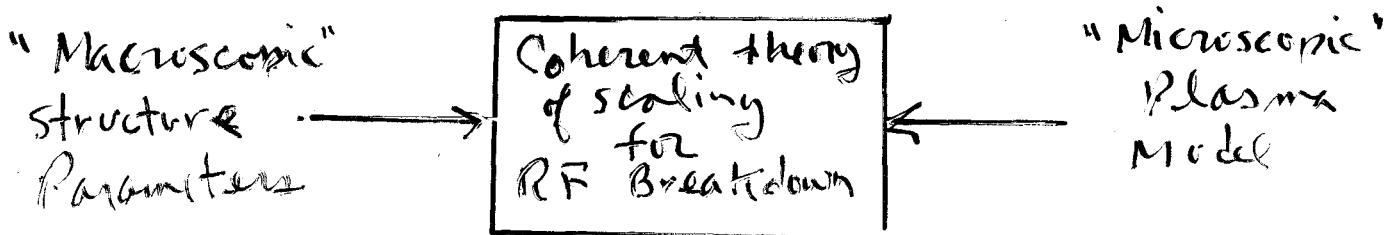 "Macroscopic"
structure
Parameters
Coherent theory
of scaling
for
RF Breakdown
"Microscopic"
Plasma
Model